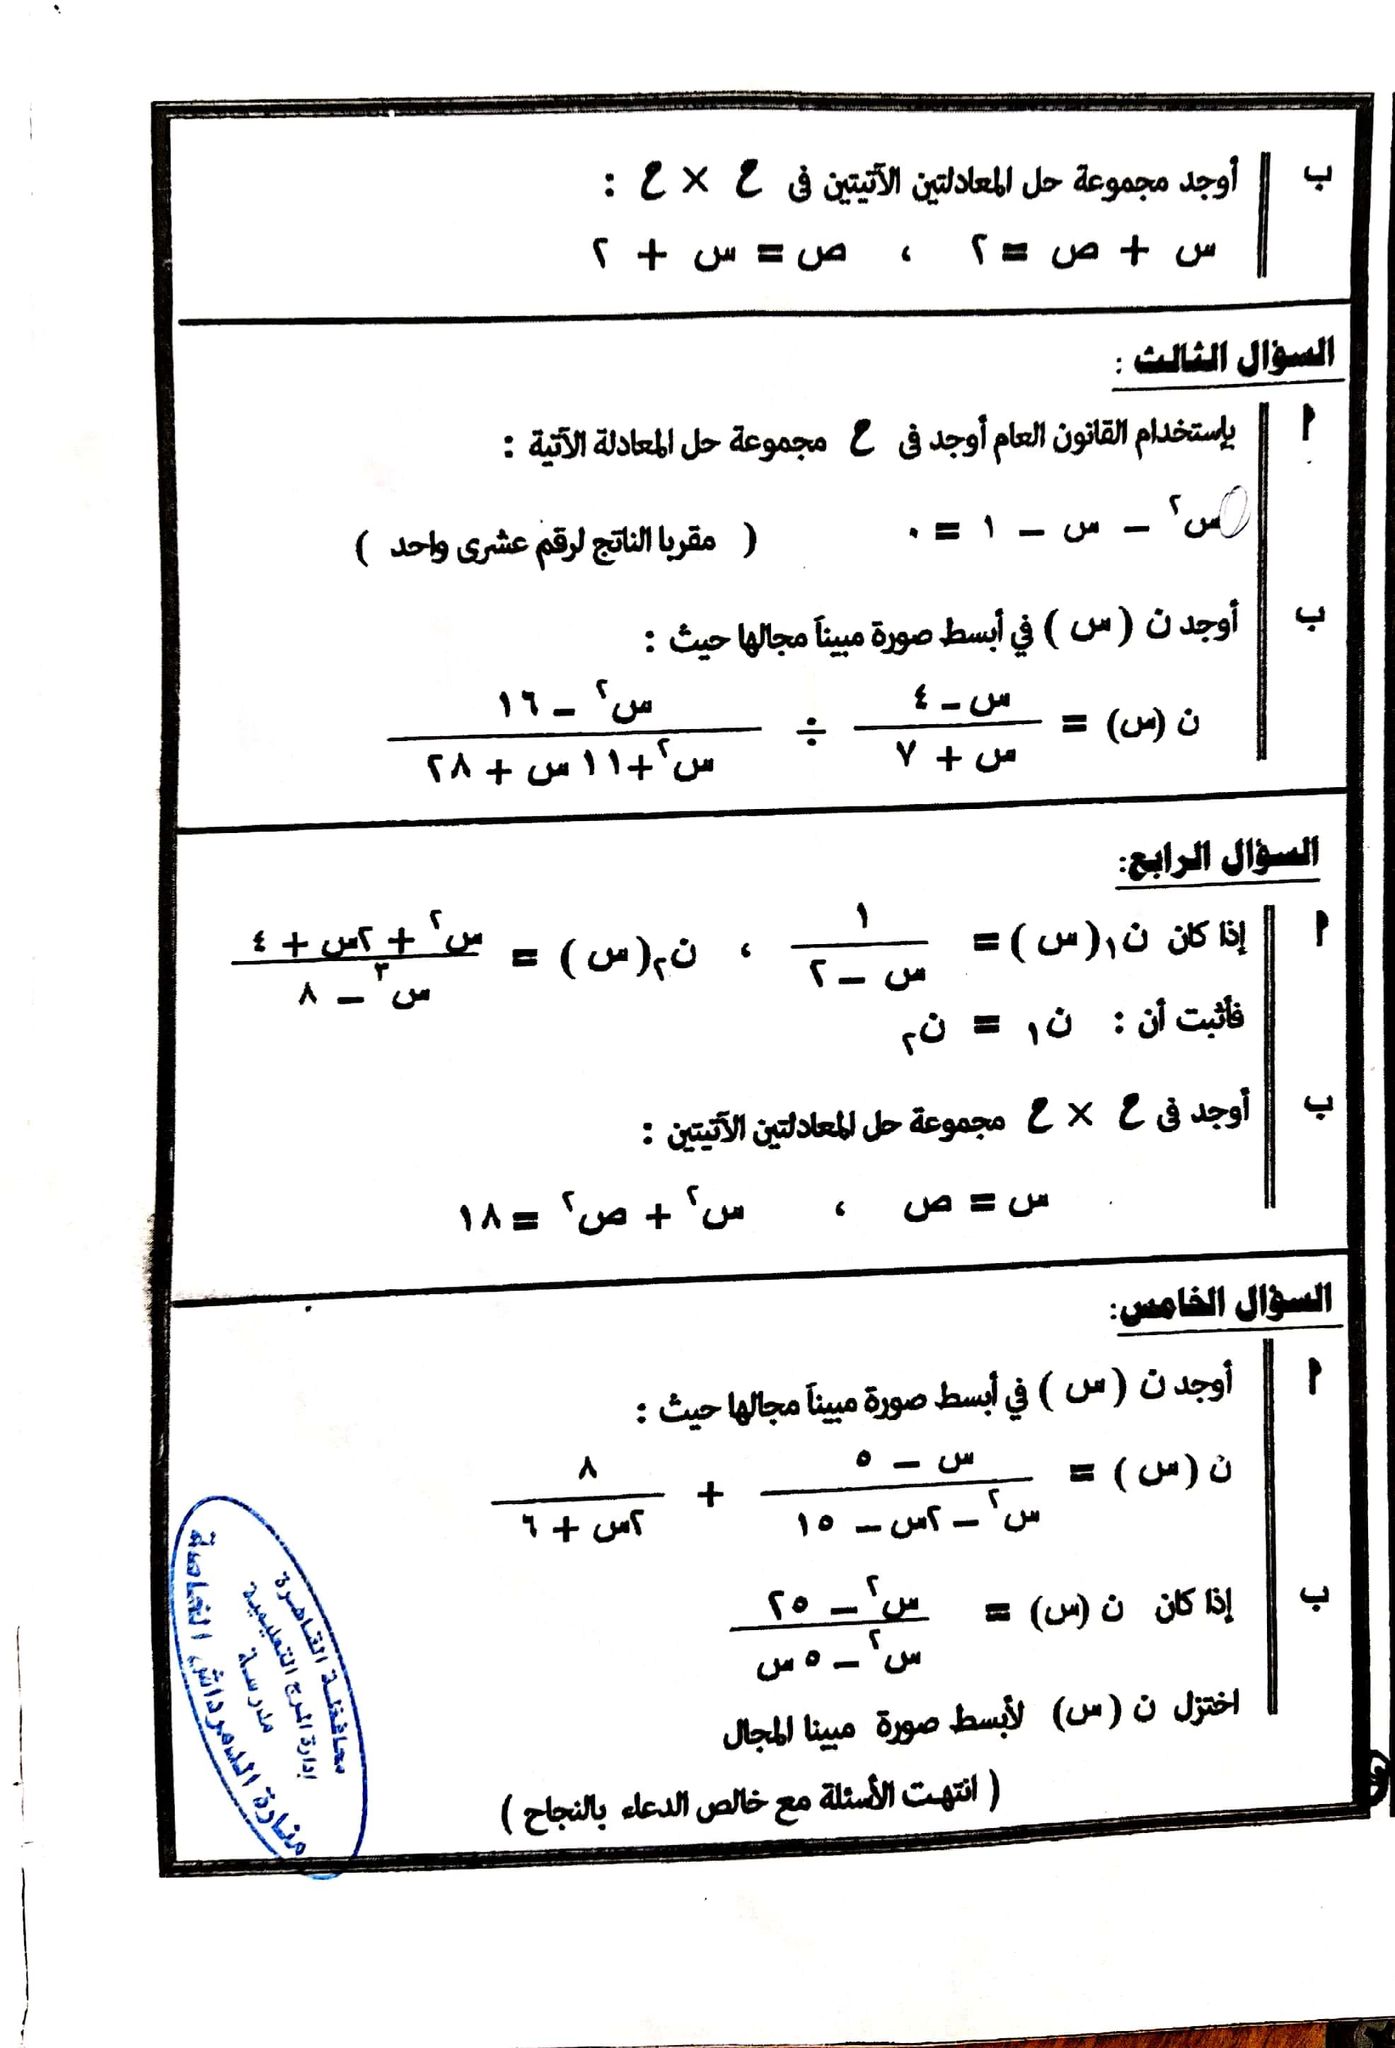 ب أوجد مجموعة حل المعادلتين الآتيتين فى ح × ح :
س + ص = ٢ ، ص = س + ٢
السؤال الثالث :
أ بإستخدام القانون العام أوجد فى ح مجموعة حل المعادلة الآتية :
س٢ – س – ١ = ٠ ( مقربا الناتج لرقم عشرى واحد )
ب أوجد ن ( س ) في أبسط صورة مبيناً مجالها حيث :
ن (س) = (س – ٤)/(س + ٧) ÷ (س٢ – ١٦)/(س٢ + ١١ س + ٢٨)
السؤال الرابع:
أ إذا كان ن١( س ) = ١/(س – ٢) ، ن٢( س ) = (س٢ + ٢س + ٤)/(س٣ – ٨)
فأثبت أن : ن١ = ن٢
ب أوجد فى ح × ح مجموعة حل المعادلتين الآتيتين :
س = ص ، س٢ + ص٢ = ١٨
السؤال الخامس:
أ أوجد ن ( س ) في أبسط صورة مبيناً مجالها حيث :
ن ( س ) = (س – ٥)/(س٢ – ٢س – ١٥) + ٨/(٢س + ٦)
ب إذا كان ن (س) = (س٢ – ٢٥)/(س٢ – ٥ س)
اختزل ن ( س ) لأبسط صورة مبينا المجال
( انتهت الأسئلة مع خالص الدعاء بالنجاح )
محافظة القاهرة
إدارة المرج التعليمية
مدرسة
منارة الدمرداش الخاصة